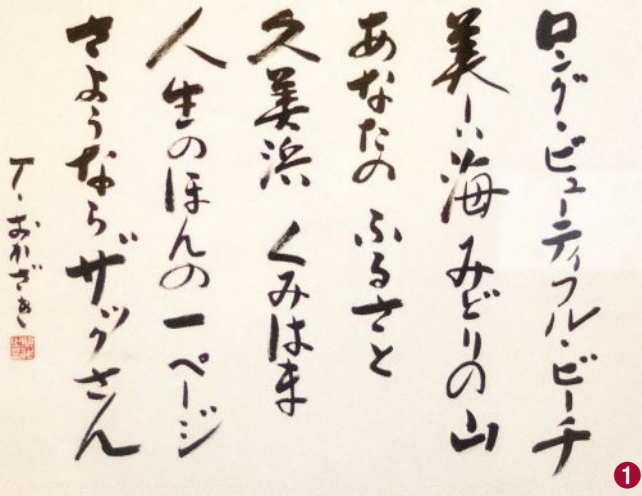 ロング・ビューティフル・ビーチ
美しい海 みどりの山
あなたの ふるさと
久美浜 くみはま
人生のほんの一ページ
さようなら ザックさん
T・おかざき
1